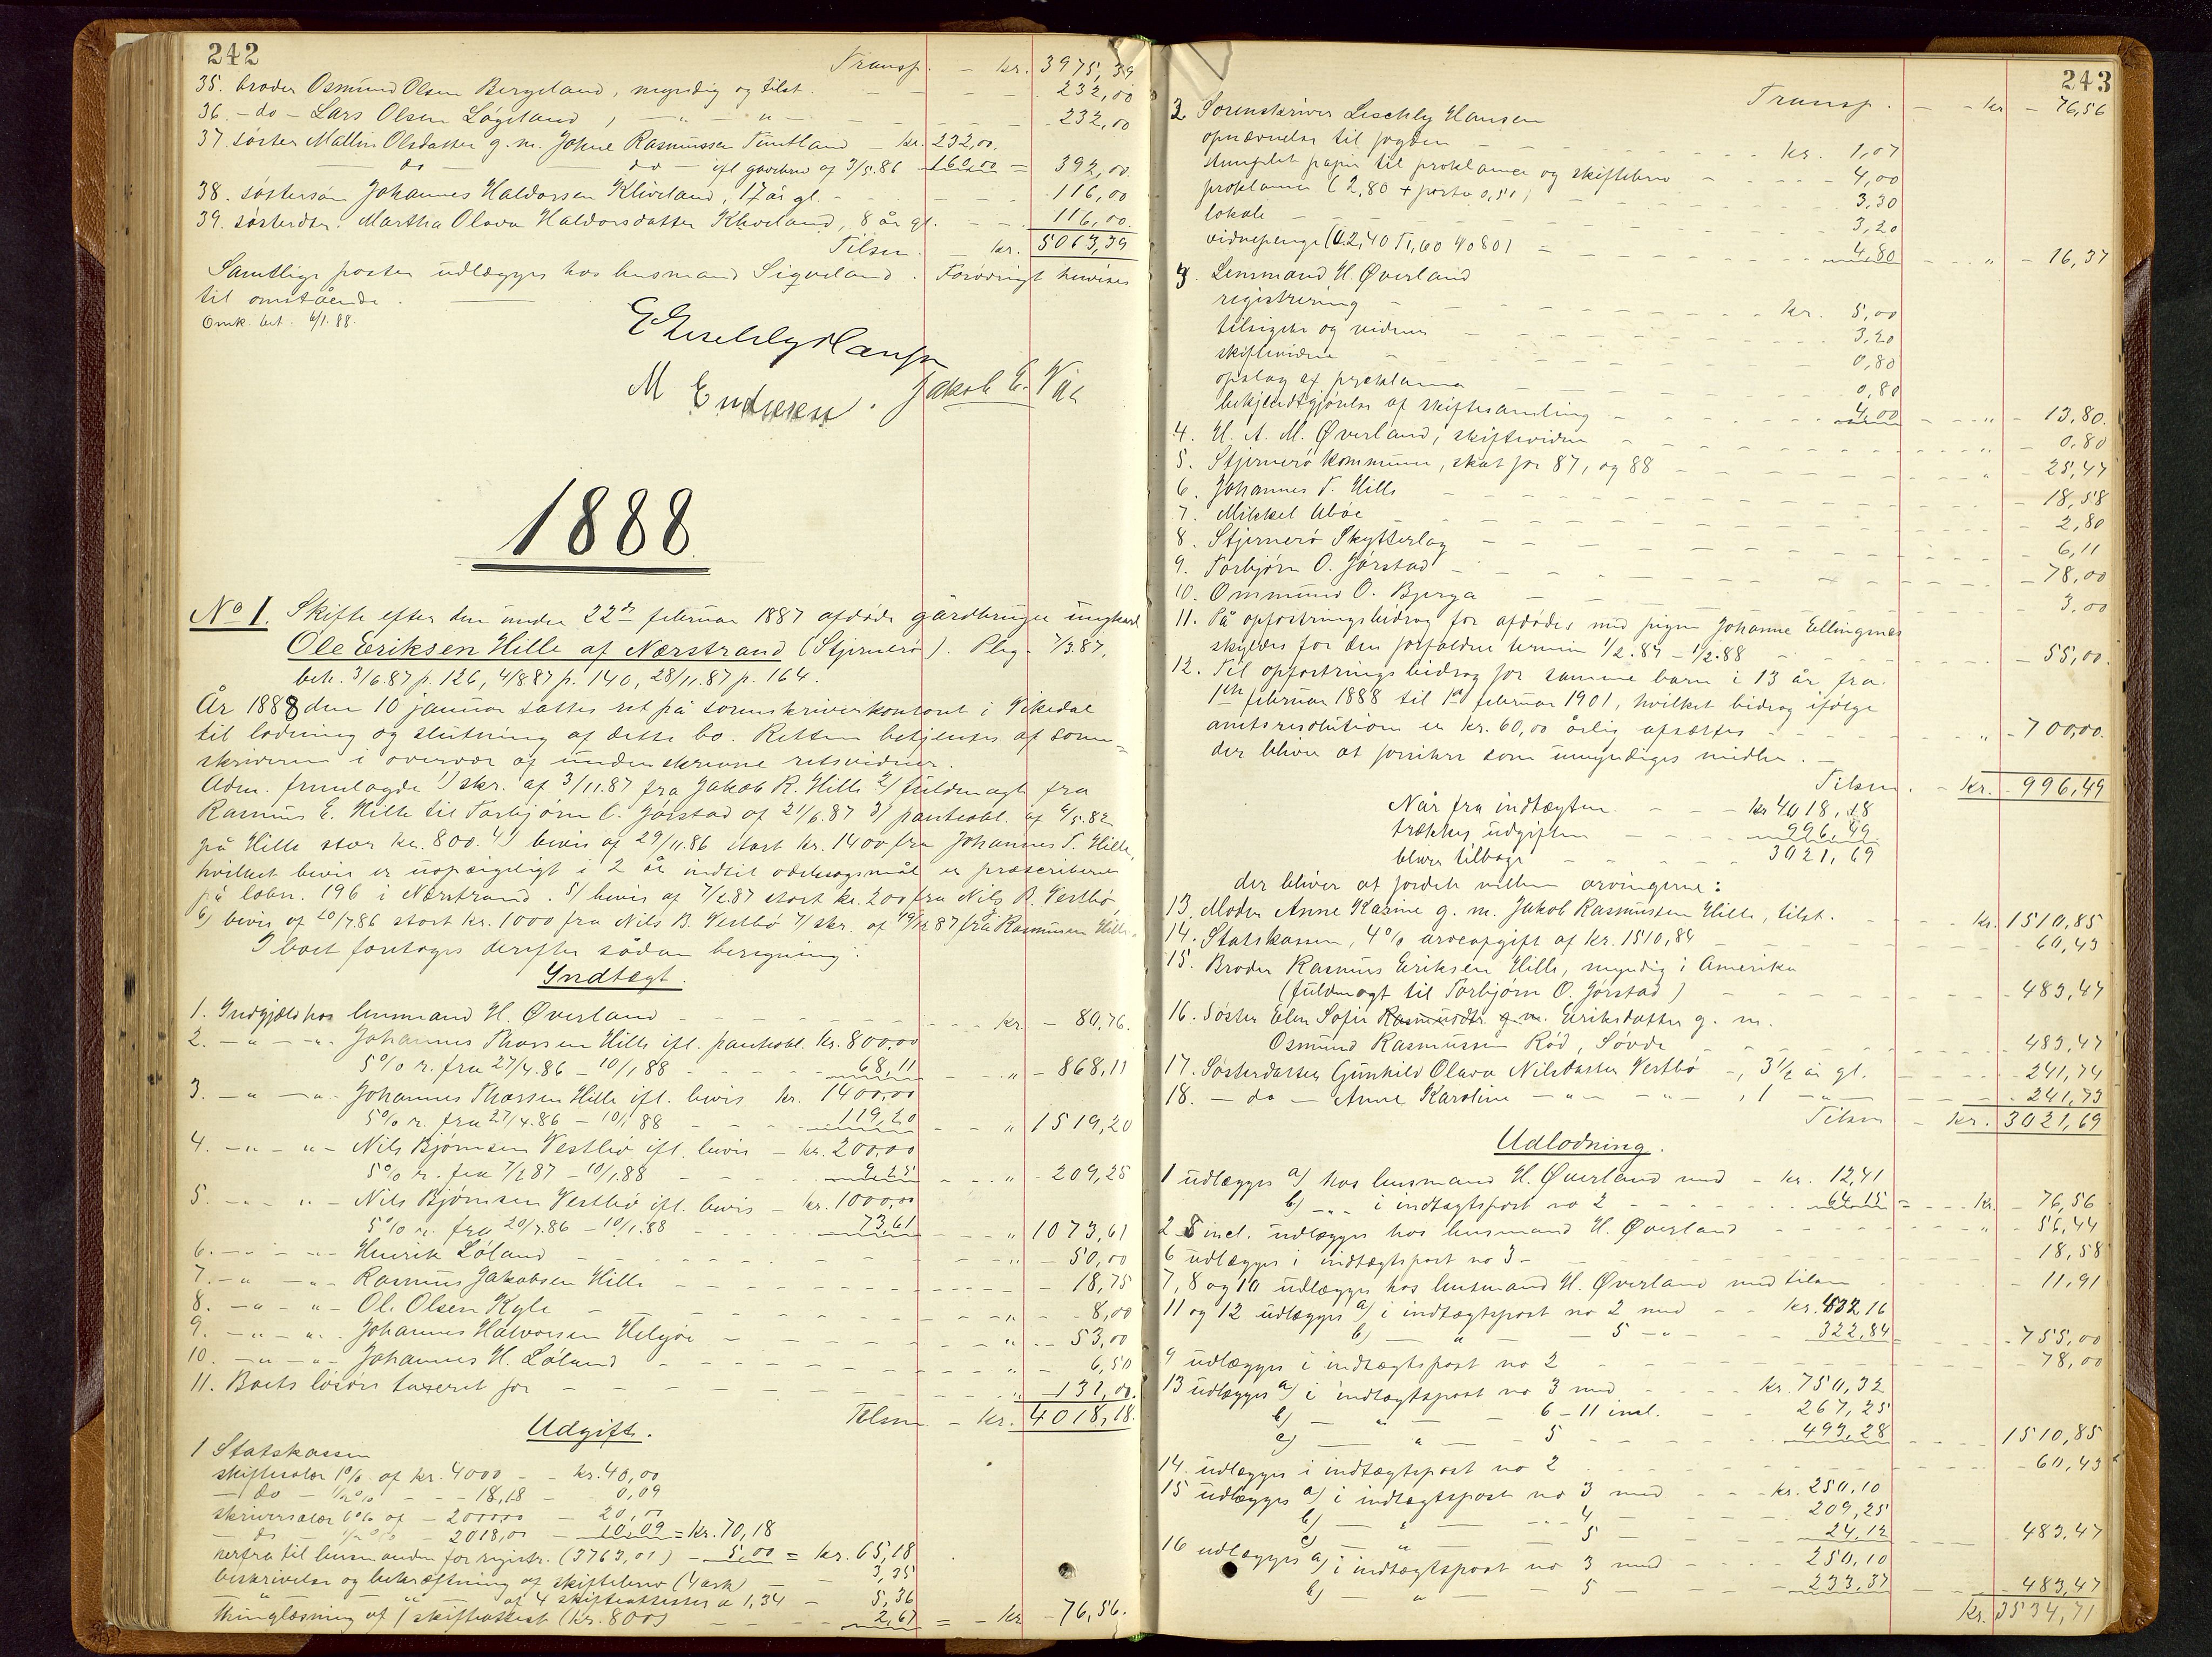 242
Transp. - kr. 3975,39
35. broder Osmund Olsen Bergeland, myndig og tilst. 232,00
36. - do - Lars Olsen Løgeland, - " - " - 232,00
37. søster Mallin Olsdatter g. m. Johne Rasmussen Tuntland - kr. 232,00.
do - do ifl gavebrev af 3/5.86 160,00 = 392,00.
38. søstersøn Johannes Haldorsen Kleveland, 17 år gl. - 116,00
39. søsterdtr. Martha Olava Haldorsdatter Kleveland, 8 år gl. - 116,00.
Tilsm. kr. 5063,39
Samtlige poster udlægges hos lensmand Sigveland. Forøvrigt henvises
til omstående.
Omk. bet. 6/1.88.
E Leschly Hansen
M Endresen. Jakob E. Vik
1888
No 1. Skifte efter den under 22de februar 1887 afdøde gårdbruger ungkarl
Ole Eriksen Hille af Nærstrand (Stjernerø). Plig. 7/3.87,
beh. 3/6.87 p. 126, 4/8.87 p. 140, 28/11.87 p. 164.
År 1888 den 10 januar sattes ret på sorenskriverkontoret i Vikedal
til lodning og slutning af dette bo. Retten betjentes af soren=
skriveren i overvær af underskrevne retsvidner.
Adm. fremlagde 1) skr. af 3/11.87 fra Jakob R. Hille 2) fuldmagt fra
Rasmus E. Hille til Torbjørn O. Jørstad af 21/6.87 3) panteobl. af 4/5.82
på Hille stor kr. 800. 4) bevis af 29/11.86 stort kr. 1400 fra Johannes T. Hille,
hvilket bevis er uopsigeligt i 2 år indtil odelssøgsmål er præscriberet
på løbn. 196 i Nærstrand. 5) bevis af 7/2.87 stort kr. 200 fra Nils B. Vestbø
6) bevis af 20/7.86 stort kr. 1000 fra Nils B. Vestbø 7) skr. af 19/12 87 fra Rasmus Hille.
I boet foretoges derefter sådan beregning:
Indtægt.
1. Indgjæld hos lensmand H. Øverland - kr. - 80,76.
2. - " - " - Johannes Thorsen Hille ifl. panteobl. kr. 800,00
5% r. fra 27/4.86 - 10/1.88 - 68,11 - " - 868,11
3. - " - " - Johannes Thorsen Hille ifl. bevis kr. 1400,00
5% r. fra 27/4.86 - 10/1.88 - 119,20 - " 1519,20
4. - " - " - Nils Bjørnsen Vestbø ifl. bevis - kr. 200,00
5% r. fra 7/2 87 - 10/1.88 - 9,25 - " - 209,25
5. - " - " - Nils Bjørnsen Vestbø ifl. bevis - kr. 1000,00
5% r. fra 20/7.86 - 10/1.88 - 73,61 - " 1073,61
6. - " - " - Henrik Løland - " - 50,00
7. - " - " - Rasmus Jakobsen Hille - 18,75
8. - " - " - Ole Olsen Kyle - " - 8,00
9. - " - " - Johannes Halvorsen Helgøe - " - 53,00
10. - " - " - Johannes H. Løland - " - 6,50
11. Boets løsøre taxeret for - " - 131,00.
Tilsm - kr. 4018,18.
Udgift.
1 Statskassen
skiftesalær 1% af kr. 4000 - - kr. 40,00
- do - 1/2% - - 18,18 - 0,09
skriversalær 1% af - 2000,00 - 20,00
- do - 1/2% - 2018,00 - 10,09 = kr. 70,18
herfra til lensmanden for registr. (3763,01) - 5,00 = kr. 65,18
beskrivelse og bekræftning af skiftebrev (4 ark) - 3,35
- " - " - af 4 skifteattester a 1,34 - 5,36
thinglæsning af 1 skifteattest (kr. 800) - 2,67 = - kr - 76,56.
243
Transp. - - kr - 76,56
2. Sorenskriver Leschly Hansen
opnævnelse til fogden - kr. 1,07
stemplet papir til proklama og skiftebrev - 4,00
proklama (2,80 + porto 0,50) 3,30
lokale - 3,20
vidnepenge (2,40 1,60 0,80) = 4,80 - " - 16,37
3. Lensmand H. Øverland
registrering - kr. 5,00
tilsigelse og vidner 3,20
skiftevidne 0,80
opslag af proklama 0,80
bekjendtgjørelse af skiftesamling - 4,00 - " - 13,80.
4. H. A. M. Øverland, skiftevidne - 0,80
5. Stjernerø kommune, skat for 87, og 88 - 25,47
6. Johannes T. Hille - 18,58
7. Mikkel Abøe 2,80
8. Stjernerø Skytterlag - 6,11
9. Torbjørn O. Jørstad - 78,00
10. Ommund O. Bjerga - 3,00
11. På opfostringsbidrag for afdødes med pigen Johanne Ellingsnes
skyldes for den forfaldne termin 1/2.87 - 1/2.88 - 55,00.
12. Til opfostringsbidrag for samme barn i 13 år fra
1ste februar 1888 til 1ste februar 1901, hvilket bidrag ifølge
amtsresolution er kr. 60,00 årlig afsættes - " - 700,00.
der bliver at forrente som umyndiges midler. -
Tilsm. - kr. - 996,49
Når fra indtægten - kr 4018,18
trækkes udgiften - 996,49
bliver tilbage - 3021,69
der bliver at fordele mellem arvingerne:
13. Moder Anne Karine g. m. Jakob Rasmussen Hille, tilst. - kr. 1510,85
14. Statskassen, 4% arveafgift af kr. 1510,84 - 60,43
15. Broder Rasmus Eriksen Hille, myndig i Amerika
(fuldmagt til Torbjørn O. Jørstad) - 483,47
16. Søster Elen Sofie Rasmusdtr. g. m. Eriksdatter g. m.
Osmund Rasmussen Rød, Søvde - 483,47
17. Søsterdatter Gunhild Olava Nilsdatter Vestbø -, 3 1/2 år gl. - 241,74
18. - do - Anne Karoline - " - " -, 1 - " - 241,73
Tilsm - kr. 3021,69
Udlodning.
1 udlægges a) hos lensmand H. Øverland med - kr. 12,41
b) - " - i indtægtspost no 2 - 64,15 = kr. - 76,56
2-5 incl. udlægges hos lensmand H. Øverland - " - 56,44
6 udlægges i indtægtspost no 3 - 18,58
7, 8 og 10 udlægges hos lensmand H. Øverland med tilsm - 11,91
11 og 12 udlægges a) i indtægtspost no 2 med - kr. 432,16
b) - " - 5 - " - 322,84 = - 755,00
9 udlægges i indtægtspost no 2 - 78,00
13 udlægges a) i indtægtspost no 3 med - kr. 750,32
b) - " - 6 - 11 incl. 267,25
c) - " - 5 - 493,28 - 1510,85
14. udlægges i indtægtspost no 2 - 60,43
15 udlægges a) i indtægtspost no 3 med - kr. 250,10
b) - " - 4 - 209,25
c) - " - 5 - 24,12 - 483,47
16 udlægges a) i indtægtspost no 3 med - 250,10
b) - " - 5 - 233,37 - 483,47
kr. 3534,71